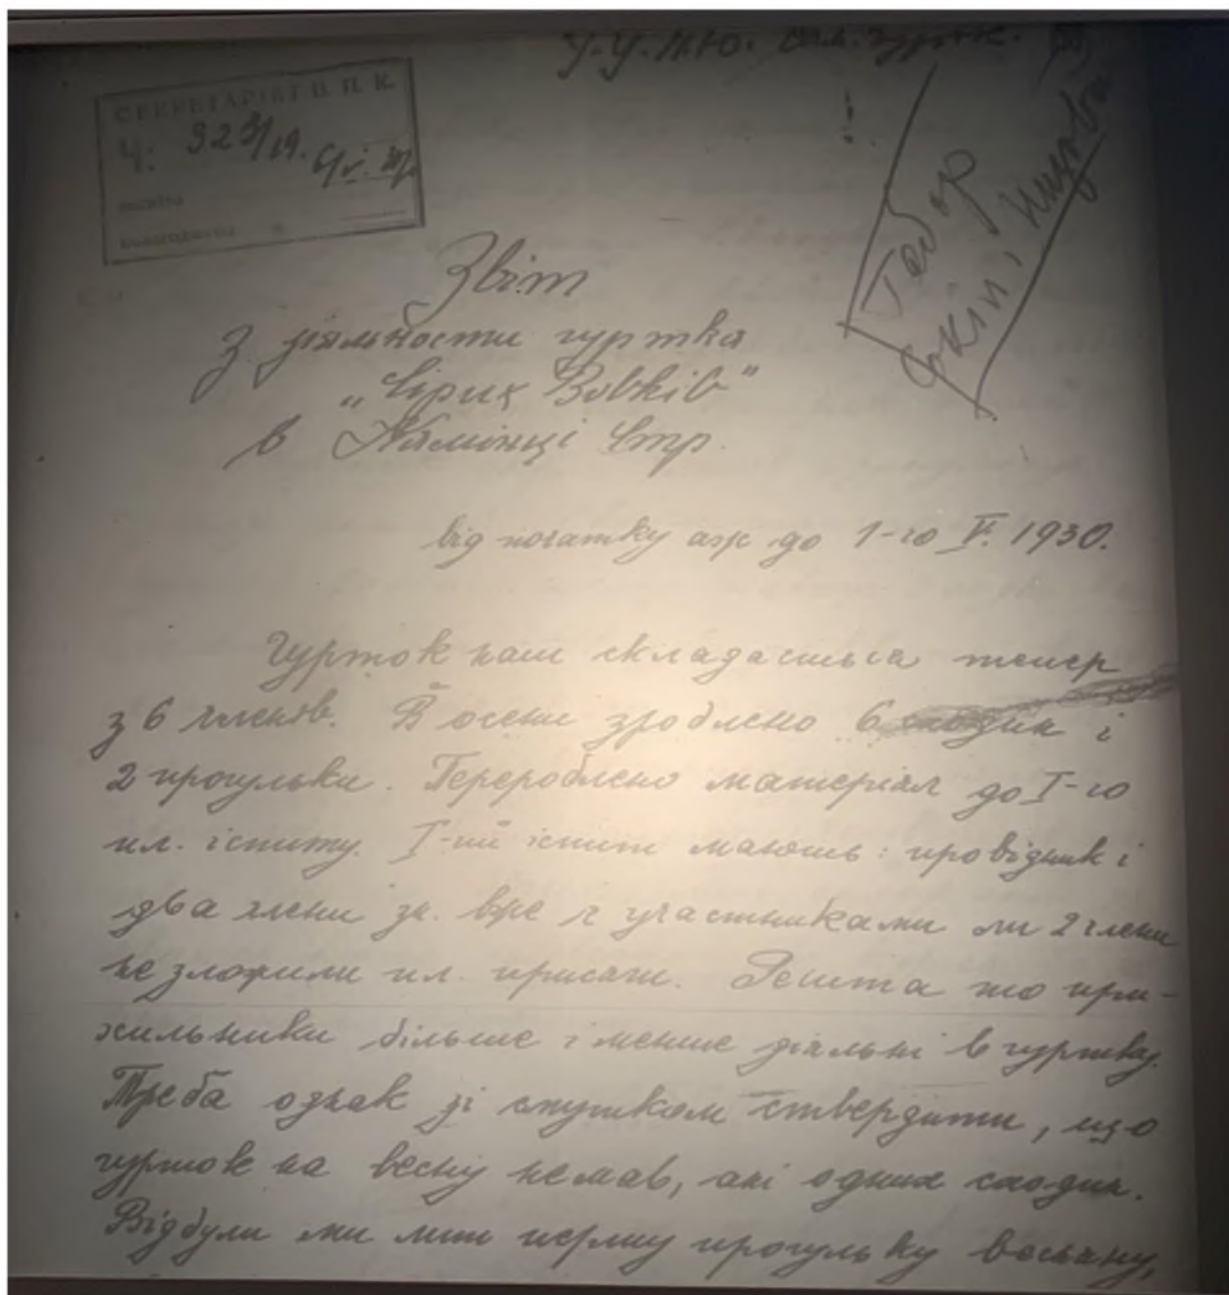 У.У.М.Ю.
СЕКРЕТАРІЯТ В. П. К.
Ч: 323/19.
Табор
Звіт
з діяльности гуртка
„Сірих Вовків"
в Камінці Стр.
від початку аж до 1-го V. 1930.
Гурток наш складаєтьса тепер
з 6 членів. В осени зроблено 6 сходин і
2 прогульки. Перероблено матеріял до І-го
пл. іспиту. І-ий іспит мають: провідник і
два члени
є учасниками
2 члени
не зложили пл. присяги. Решта то при-
хильники більше і менше діяльні в гуртку.
Треба однак зі смутком ствердити, що
гурток на весну немав, ані одних сходин.
Відбули ми лиш першу прогульку весняну,